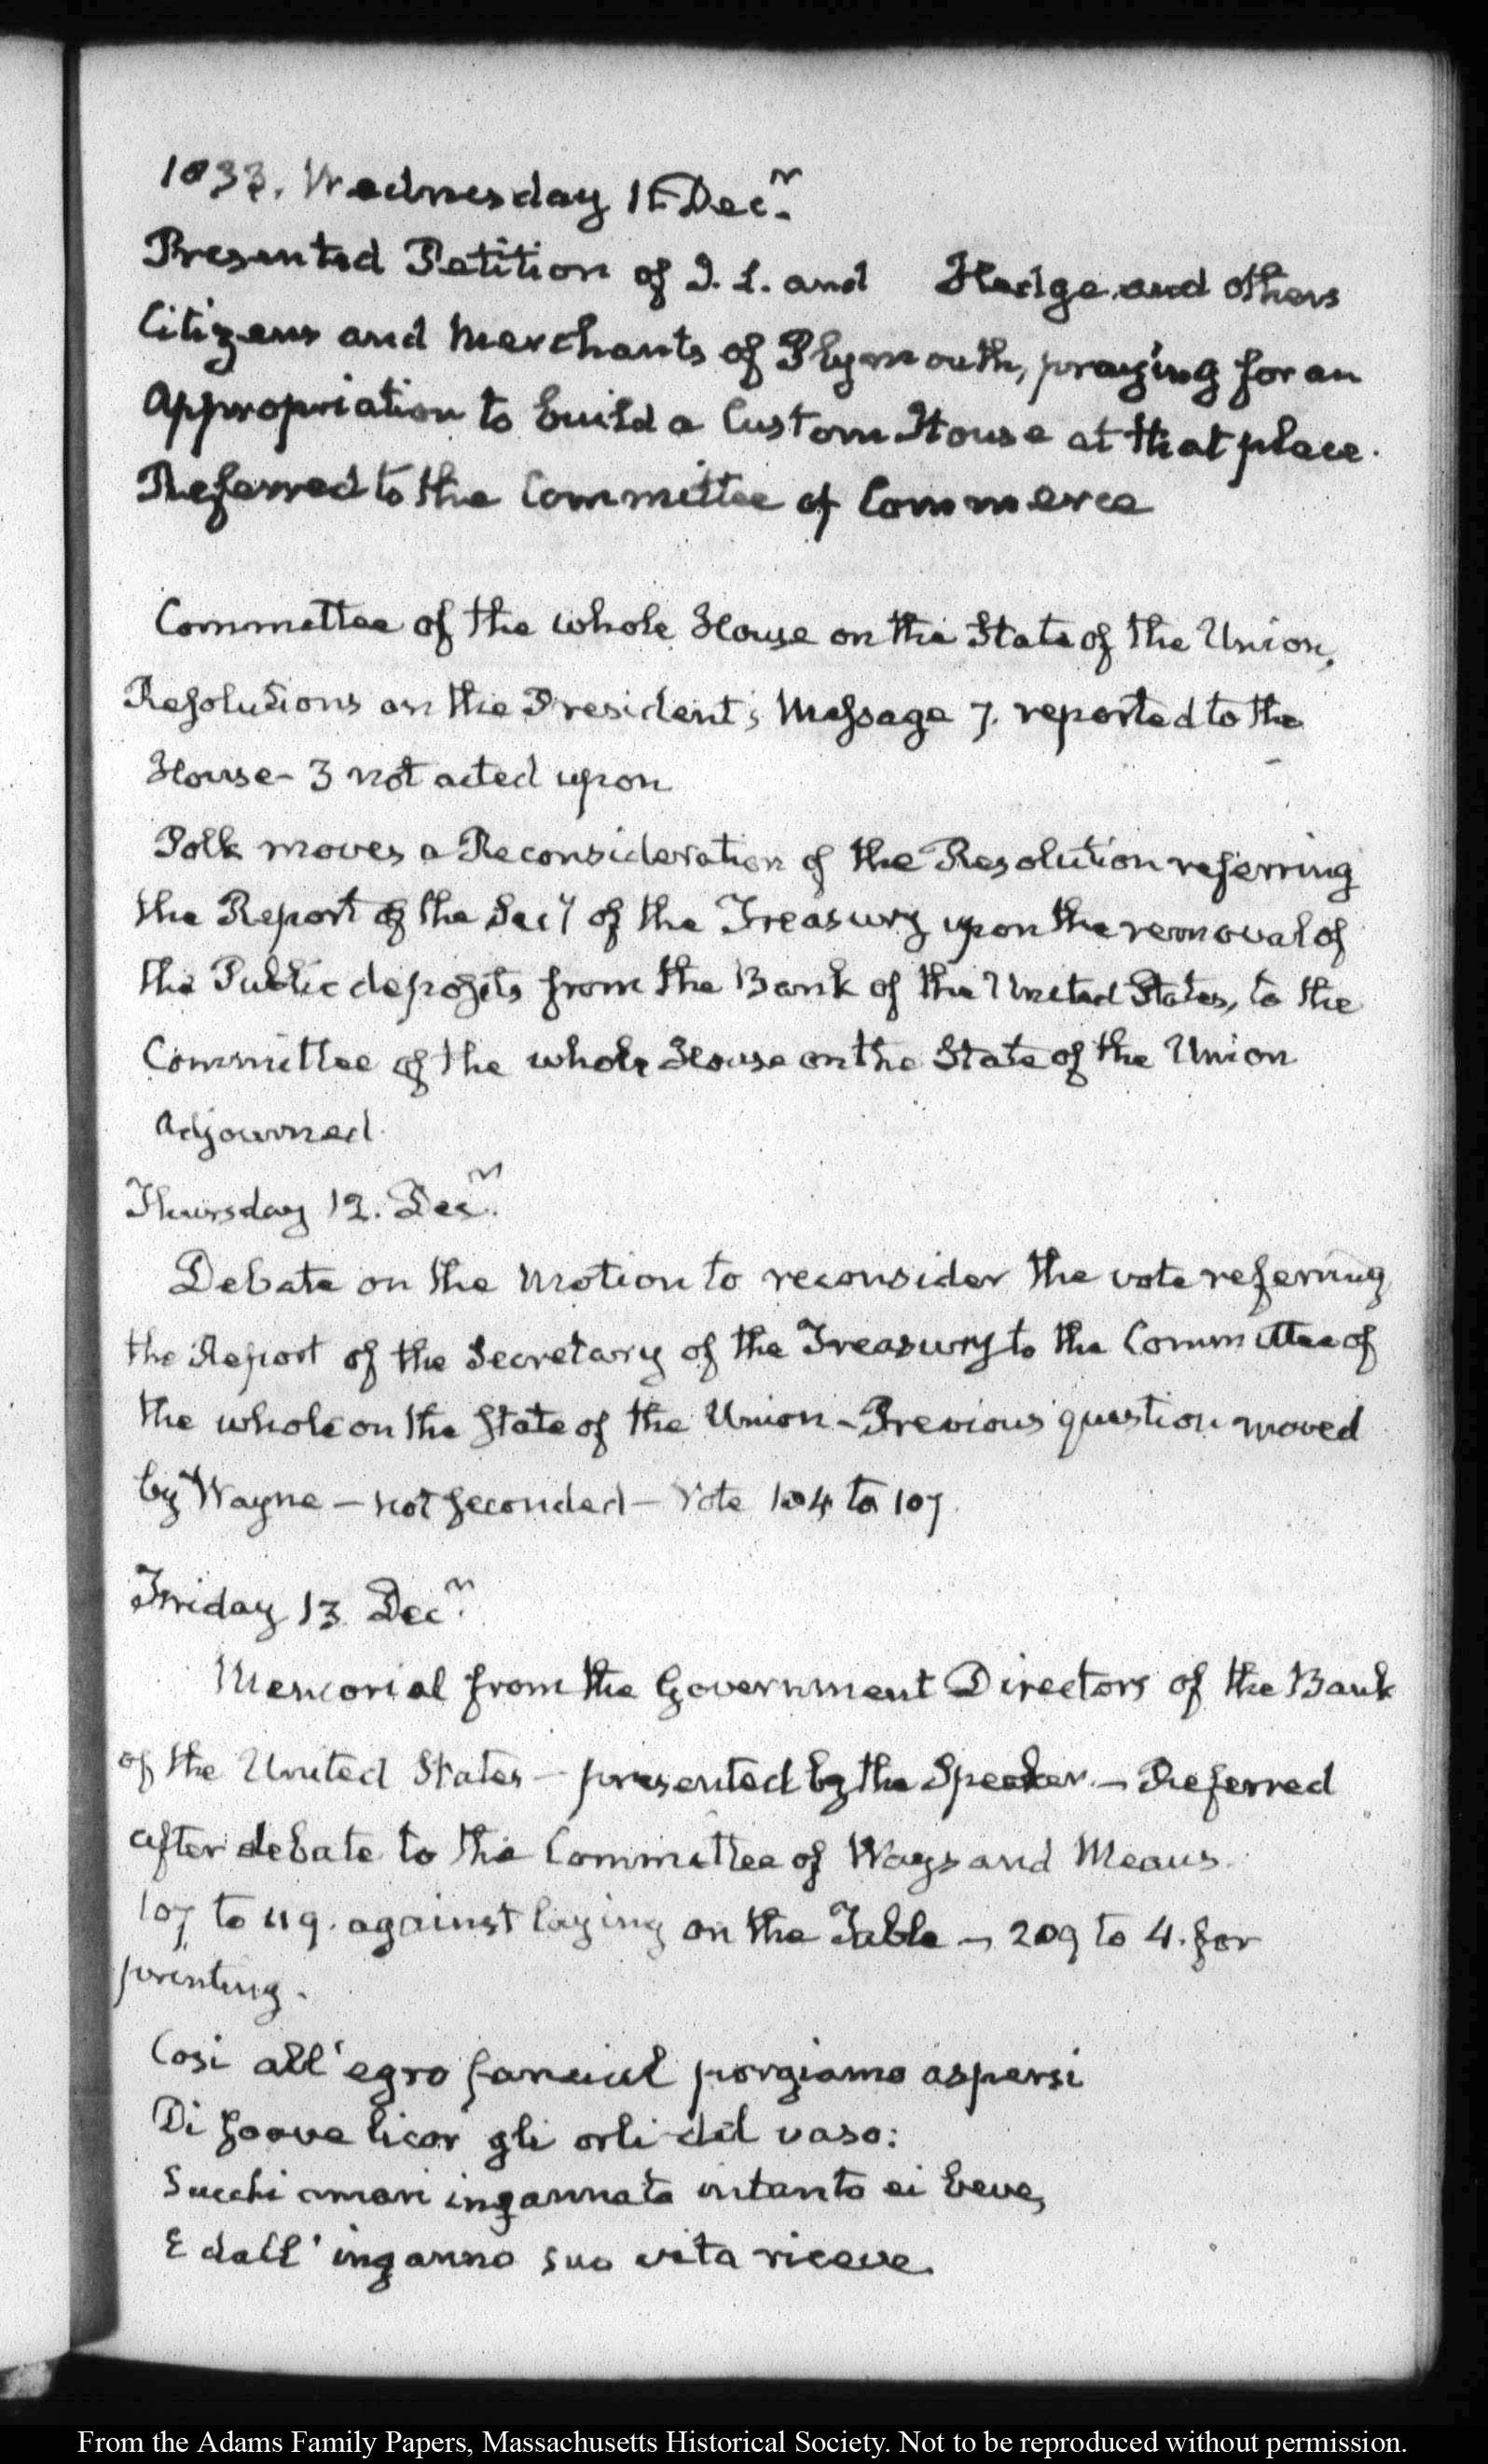 1833. Wednesday 11 Decr.
Presented Petition of I. L. and Hedge and others
Citizens and Merchants of Plymouth, praying for an
Appropriation to build a Custom House at that place.
Referred to the Committee of Commerce
Committee of the whole House on the State of the Union.
Resolutions on the President's Message 7. reported to the
House - 3 not acted upon
Polk moves a Reconsideration of the Resolution referring
the Report of the Secy of the Treasury upon the removal of
the Public deposits from the Bank of the United States, to the
Committee of the whole House on the State of the Union
Adjourned.
Thursday 12. Decr.
Debate on the Motion to reconsider the vote referring
the Report of the Secretary of the Treasury to the Committee of
the whole on the State of the Union - Previous question moved
by Wayne — not seconded — Vote 104 to 107.
Friday 13 Decr.
Memorial from the Government Directors of the Bank
of the United States — presented by the Speaker. — Referred
after debate to the Committee of Ways and Means.
107 to 119. against laying on the Table — 209 to 4. for
printing.
Cosi all' egro fanciul porgiamo aspersi
Di soave licor gli orli del vaso:
Succhi amari ingannato intanto ei beve,
E dall' inganno suo vita riceve.
From the Adams Family Papers, Massachusetts Historical Society. Not to be reproduced without permission.